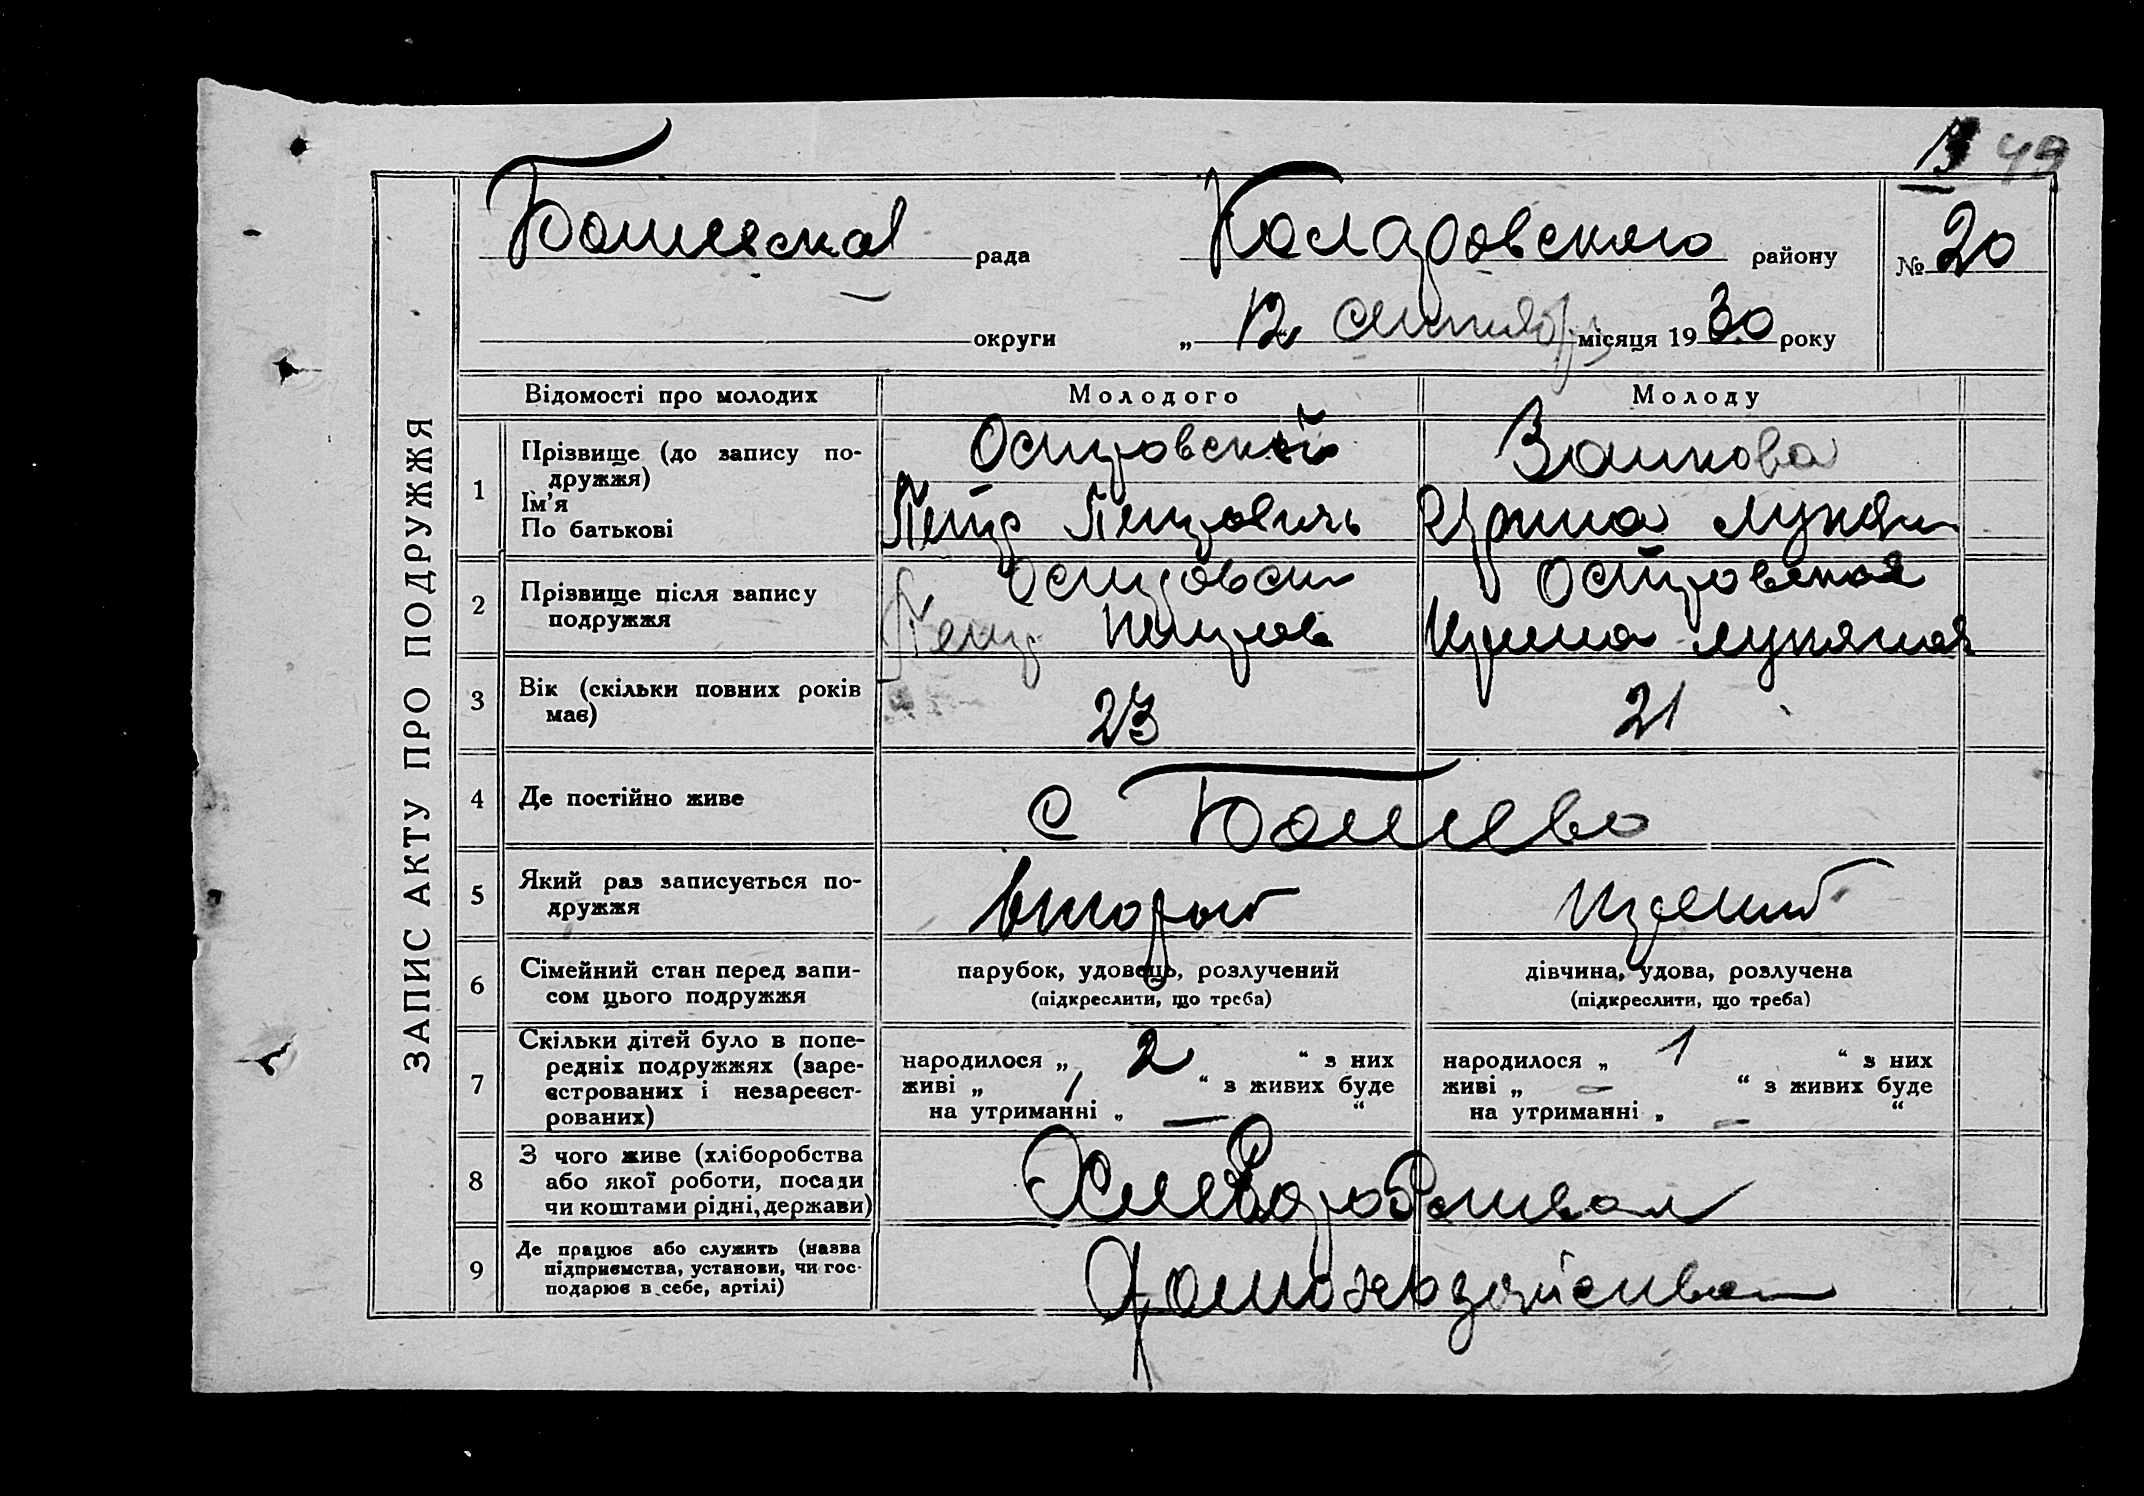 49
рада
района
№ 20
округи „ 12 сентября місяця 1930 року
ЗАПИС АКТУ ПРО ПОДРУЖЖЯ
Відомості про молодих Молодого Молоду
1 Прізвище (до запису по-
дружжя)
Ім'я
По батькові
Островский
Петр Петрович
Ирина Лукян
2 Прізвище після запису
подружжя
Петр Петров
Островская
3 Вік (скільки повних років
має)
23 21
4 Де постійно живе
с
5 Який раз записується по-
дружжя
второй
6 Сімейний стан перед запи-
сом цього подружжя
парубок, удовець, розлучений
(підкреслити, що треба)
дівчина, удова, розлучена
(підкреслити, що треба)
7 Скільки дітей було в попе-
редніх подружжях (заре-
єстрованих і незареєст-
рованих)
народилося „ 2 “ з них
живі „ 1 “ з живих буде
на утриманні „ — “
народилося „ 1 “ з них
живі „ — “ з живих буде
на утриманні „ — “
8 З чого живе (хліборобства
або якої роботи, посади
чи коштами рідні, держави)
9 Де працює або служить (назва
підприємства, установи, чи гос-
подарює в себе, артілі)